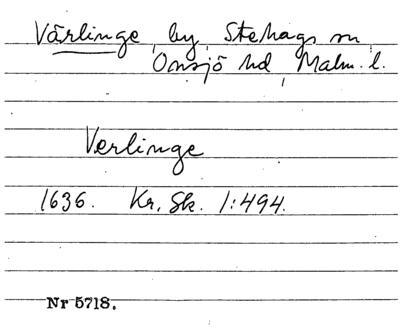 Värlinge, by, Stehags sn
Onsjö hd Malm. l.
Verlinge
1636. Kr. Sk. 1:494.
Nr 5718.